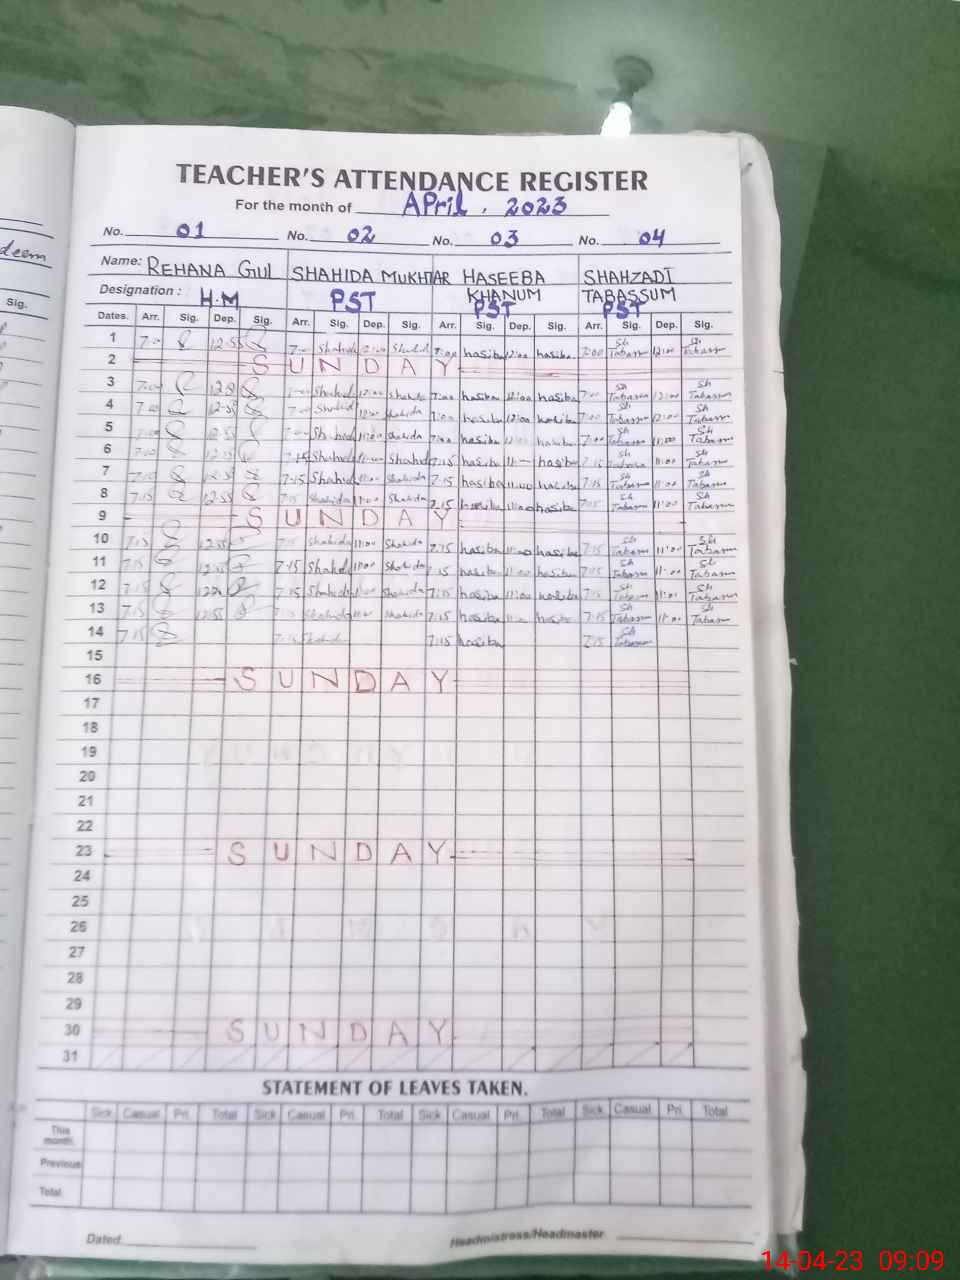 deem
Sig.
TEACHER'S ATTENDANCE REGISTER
For the month of APril, 2023
No. 01 No. 02 No. 03 No. 04
Name: REHANA GUL SHAHIDA MUKHTAR HASEEBA KHANUM SHAHZADI TABASSUM
Designation: H.M PST PST PST
Dates. Arr. Sig. Dep. Sig. Arr. Sig. Dep. Sig. Arr. Sig. Dep. Sig. Arr. Sig. Dep. Sig.
1 7:00 12:55 7:00 Shahida 12:00 Shahid 7:00 hasiba 12:00 hasiba 7:00 Sh Tabassm 12:00 Sh Tabassm
2 SUNDAY
3 7:00 Shahid 12:00 shahida 7:00 hasiba 12:00 hasiba 7:00 Sh Tabassm 12:00 Sh Tabassm
4 7:00 7:00 Shahid 12:00 shahida 7:00 hasiba 12:00 hasiba 7:00 Sh Tabassm 12:00 Sh Tabassm
5 7:00 12:55 Shahid 11:00 shahida 7:00 hasiba hasiba 7:00 Sh Tabassm 11:00 Sh Tabassm
6 7:00 7:15 Shahid Shahid 7:15 hasiba hasiba 7:15 Sh Tabassm 11:00 Sh Tabassm
7 7:15 7:15 Shahida 11:00 Shahida 7:15 hasiba 11:00 7:15 Sh Tabassm 11:00 Sh Tabassm
8 7:15 12:55 7:15 Shahida 11:00 Shahida 7:15 hasiba 11:00 hasiba 7:15 Sh Tabassm 11:00 Sh Tabassm
9 SUNDAY
10 7:15 12:55 7:15 Shahida 11:00 Shahida 7:15 hasiba 11:00 hasiba 7:15 Sh Tabassm 11:00 Sh Tabassm
11 7:15 7:15 Shahid 11:00 Shahida 7:15 hasiba 11:00 hasiba 7:15 Sh Tabassm 11:00 Sh Tabassm
12 7:15 7:15 Shahida Shahida 7:15 hasiba 11:00 hasiba 7:15 Sh Tabassm 11:00 Sh Tabassm
13 7:15 12:55 Shahida shahida 7:15 hasiba hasiba 7:15 Sh Tabassm 11:00 Sh Tabassm
14 7:15 7:15 Shahida 7:15 hasiba 7:15 Sh Tabassm
15
16 SUNDAY
17
18
19
20
21
22
23 SUNDAY
24
25
26
27
28
29
30 SUNDAY
31
STATEMENT OF LEAVES TAKEN.
Sick Casual Pri. Total Sick Casual Pri. Total Sick Casual Pri. Total Sick Casual Pri. Total
This month.
Previous
Total
Dated Headmistress/Headmaster
14-04-23 09:09